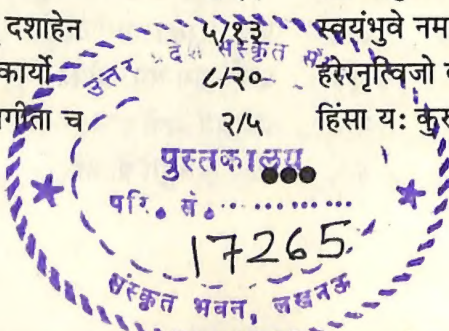 दशाहेन ५/१३ स्वयंभुवे नम
कार्यो ८/२० हरेरनृत्विजो
गीता च २/५ हिंसा यः कुरु
उत्तर संस्कृत
पुस्तकालय
परि. सं.
17265
संस्कृत भवन, लखनऊ